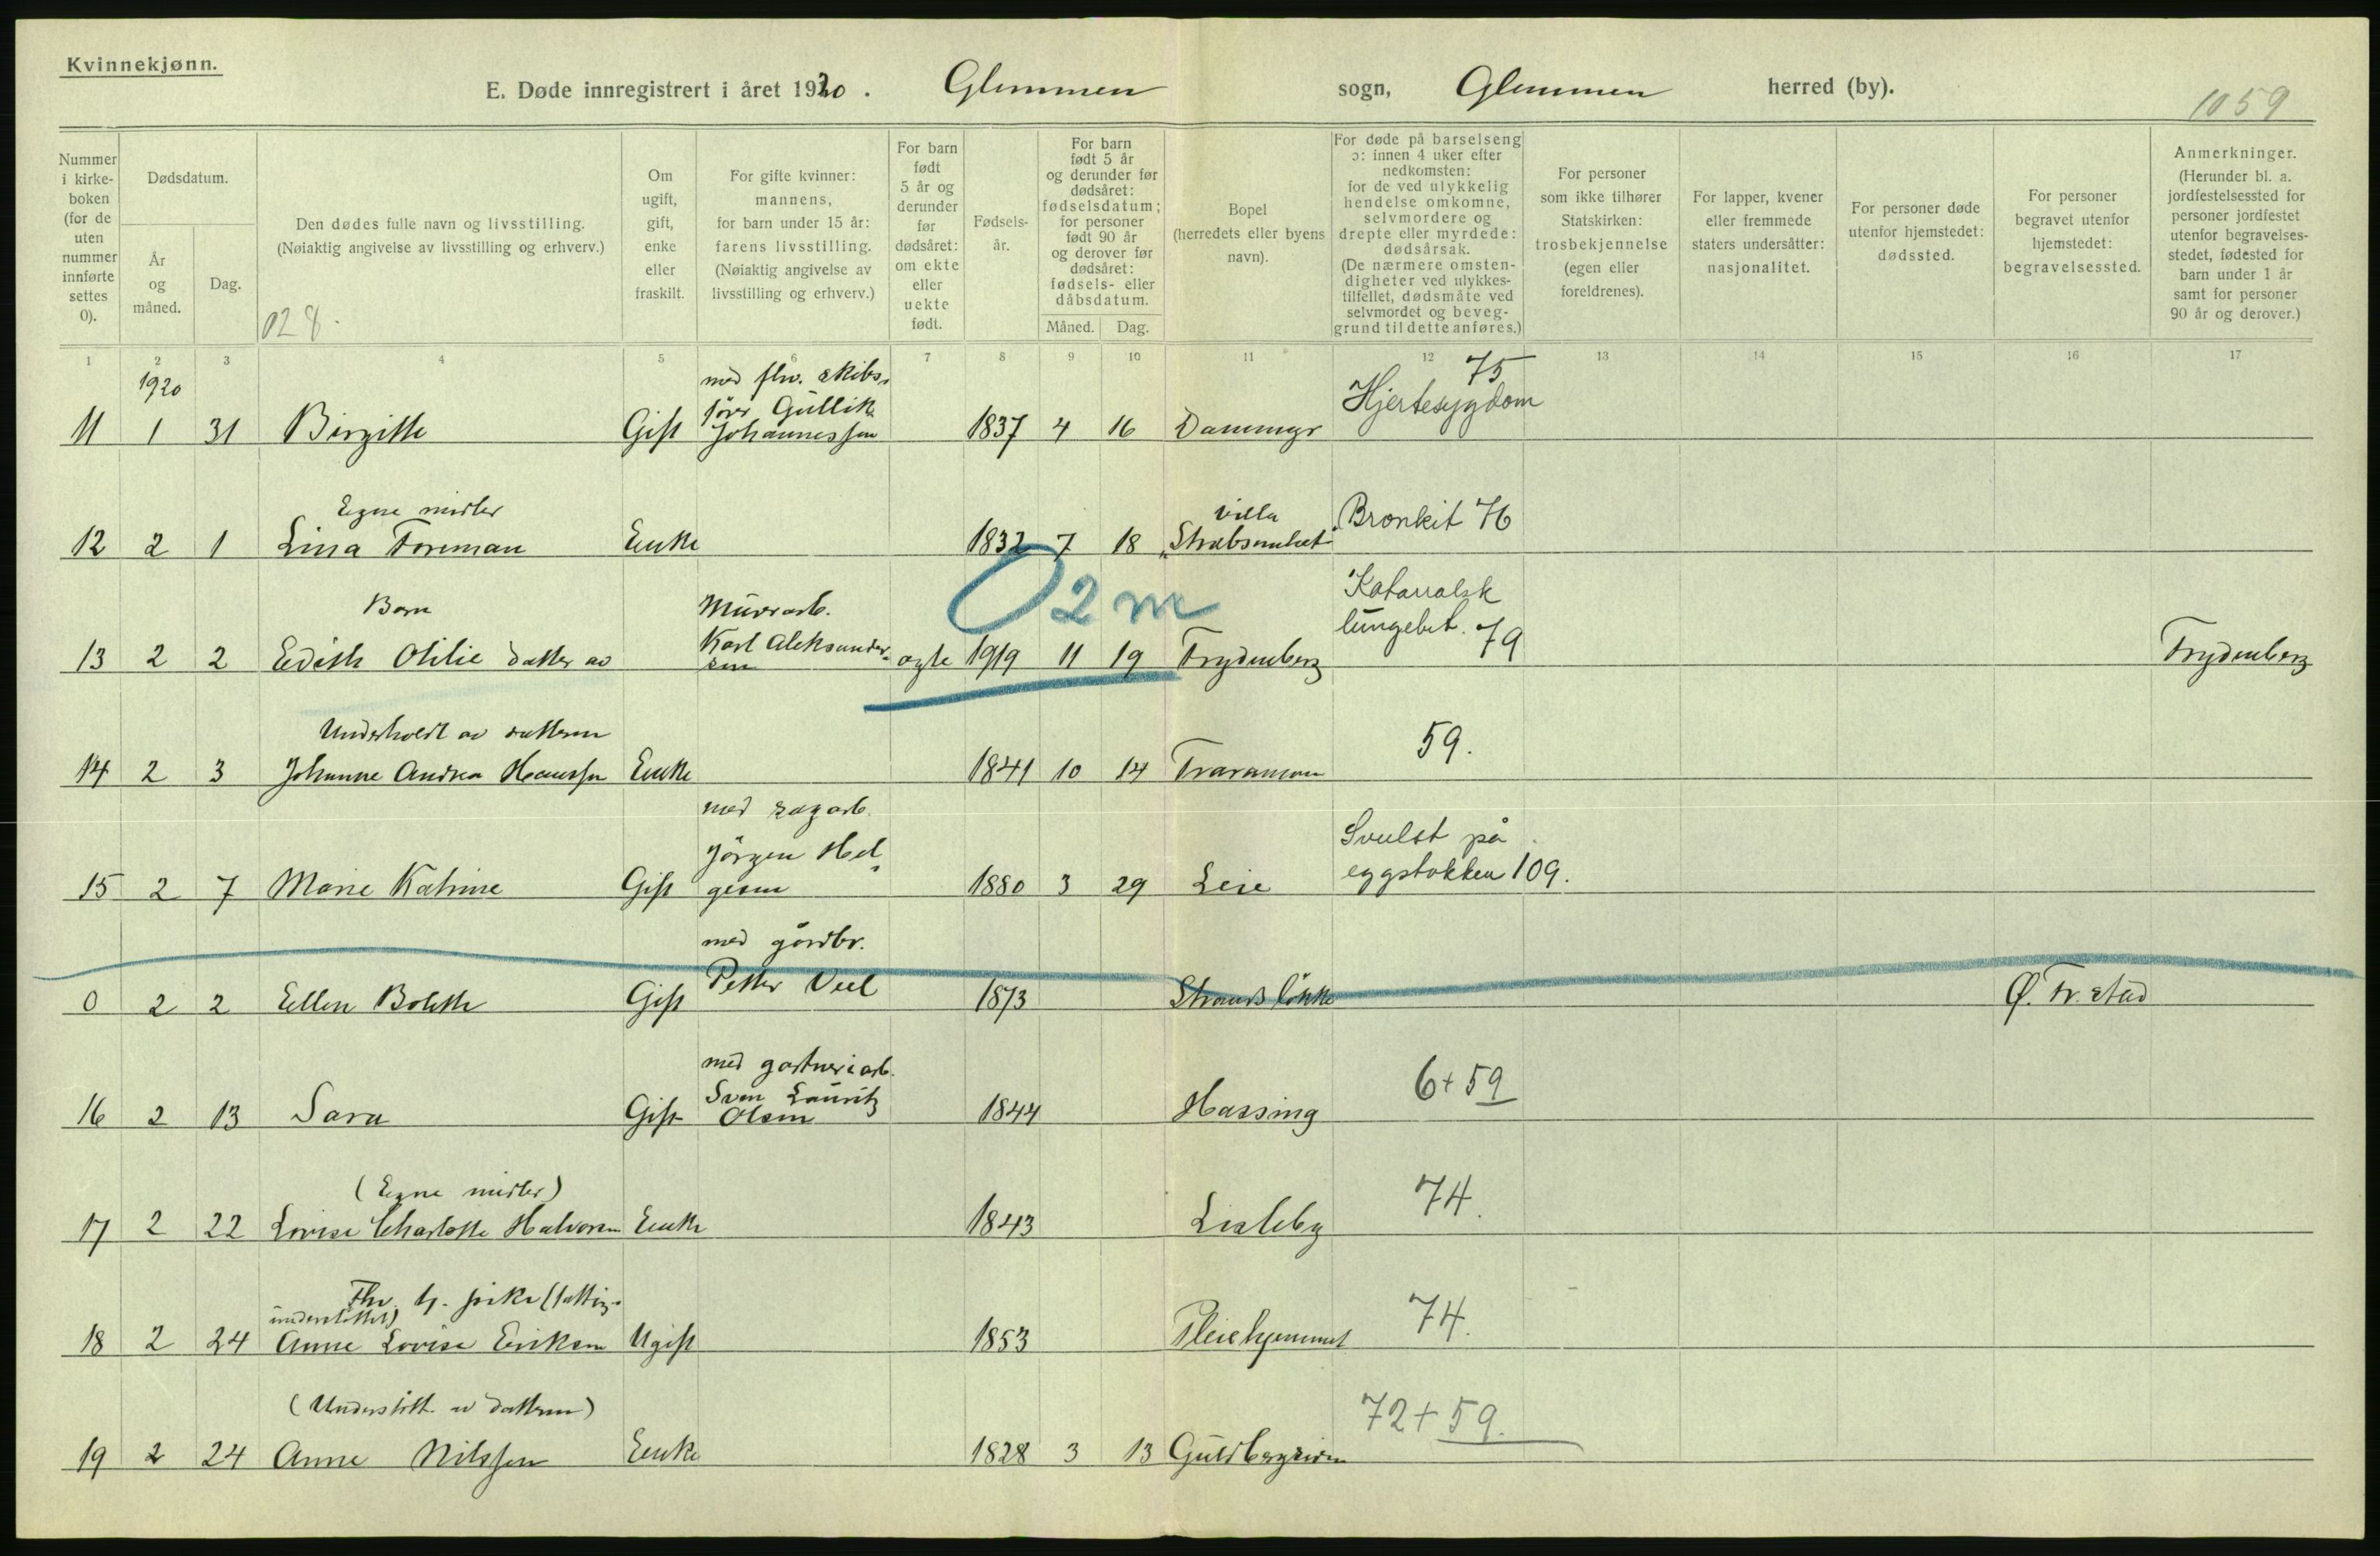 Kvinnekjønn.
E. Døde innregistrert i året 1920. Glemmen sogn, Glemmen herred (by).
1059
Nummer i kirke- boken (for de uten nummer innførte settes 0).
Dødsdatum.
År og måned.
Dag.
Den dødes fulle navn og livsstilling.
(Nøiaktig angivelse av livsstilling og erhverv.)
028.
Om ugift, gift, enke eller fraskilt.
For gifte kvinner: mannens, for barn under 15 år: farens livsstilling. (Nøiaktig angivelse av livsstilling og erhverv.)
For barn født 5 år og derunder før dødsåret: om ekte eller uekte født.
Fødsels- år.
For barn født 5 år og derunder før dødsåret: fødselsdatum; for personer født 90 år og derover før dødsåret: fødsels- eller dåbsdatum.
Måned. Dag.
Bopel (herredets eller byens navn).
For døde på barselseng ɔ: innen 4 uker efter nedkomsten: for de ved ulykkelig hendelse omkomne, selvmordere og drepte eller myrdede: dødsårsak. (De nærmere omsten- digheter ved ulykkes- tilfellet, dødsmåte ved selvmordet og beveg- grund til dette anføres.)
For personer som ikke tilhører Statskirken: trosbekjennelse (egen eller foreldrenes).
For lapper, kvener eller fremmede staters undersåtter: nasjonalitet.
For personer døde utenfor hjemstedet: dødssted.
For personer begravet utenfor hjemstedet: begravelsessted.
Anmerkninger. (Herunder bl. a. jordfestelsessted for personer jordfestet utenfor begravelses- stedet, fødested for barn under 1 år samt for personer 90 år og derover.)
1 2 3 4 5 6 7 8 9 10 11 12 13 14 15 16 17
1920 med fhv. skibs- 75
fører Gullik Hjertesygdom
11 1 31 Birgitte Gift Johannessen 1837 4 16 Dammyr
Egne midler villa Bronkit 76
12 2 1 Lina Foreman Enke 1832 7 18
O 2 m
Barn Murarb. Katarralsk
Karl Aleksander- lungebet. 79
13 2 2 Edith Otilie datter av sen egte 1919 11 19 Frydenberg Frydenberg
Underholdt av datteren 59.
14 2 3 Johanne Andrea Hanssen Enke 1841 10 14 Traramoen
med sagarb. Svulst på
Jörgen Hel- eggstokken 109.
15 2 7 Marie Katrine Gift gesen 1880 3 29 Leie
med gårdbr.
0 2 2 Ellen Bolette Gift Petter Veel 1873 Strandsløkke Ø. Fr.stad
med gartneriarb. 6+59
Sven Lauritz
16 2 13 Sara Gift Olsen 1844 Hassing
(Egne midler) 74.
17 2 22 Lovise Charlotte Halvorsen Enke 1843 Lisleby
Fhv. tj. pike (fattig-
understöttet) 74.
18 2 24 Anne Lovise Eriksen Ugift 1853 Pleiehjemmet
(Understött. av datteren) 72+59.
19 2 24 Anne Nilssen Enke 1828 3 13 Guldbergsiden